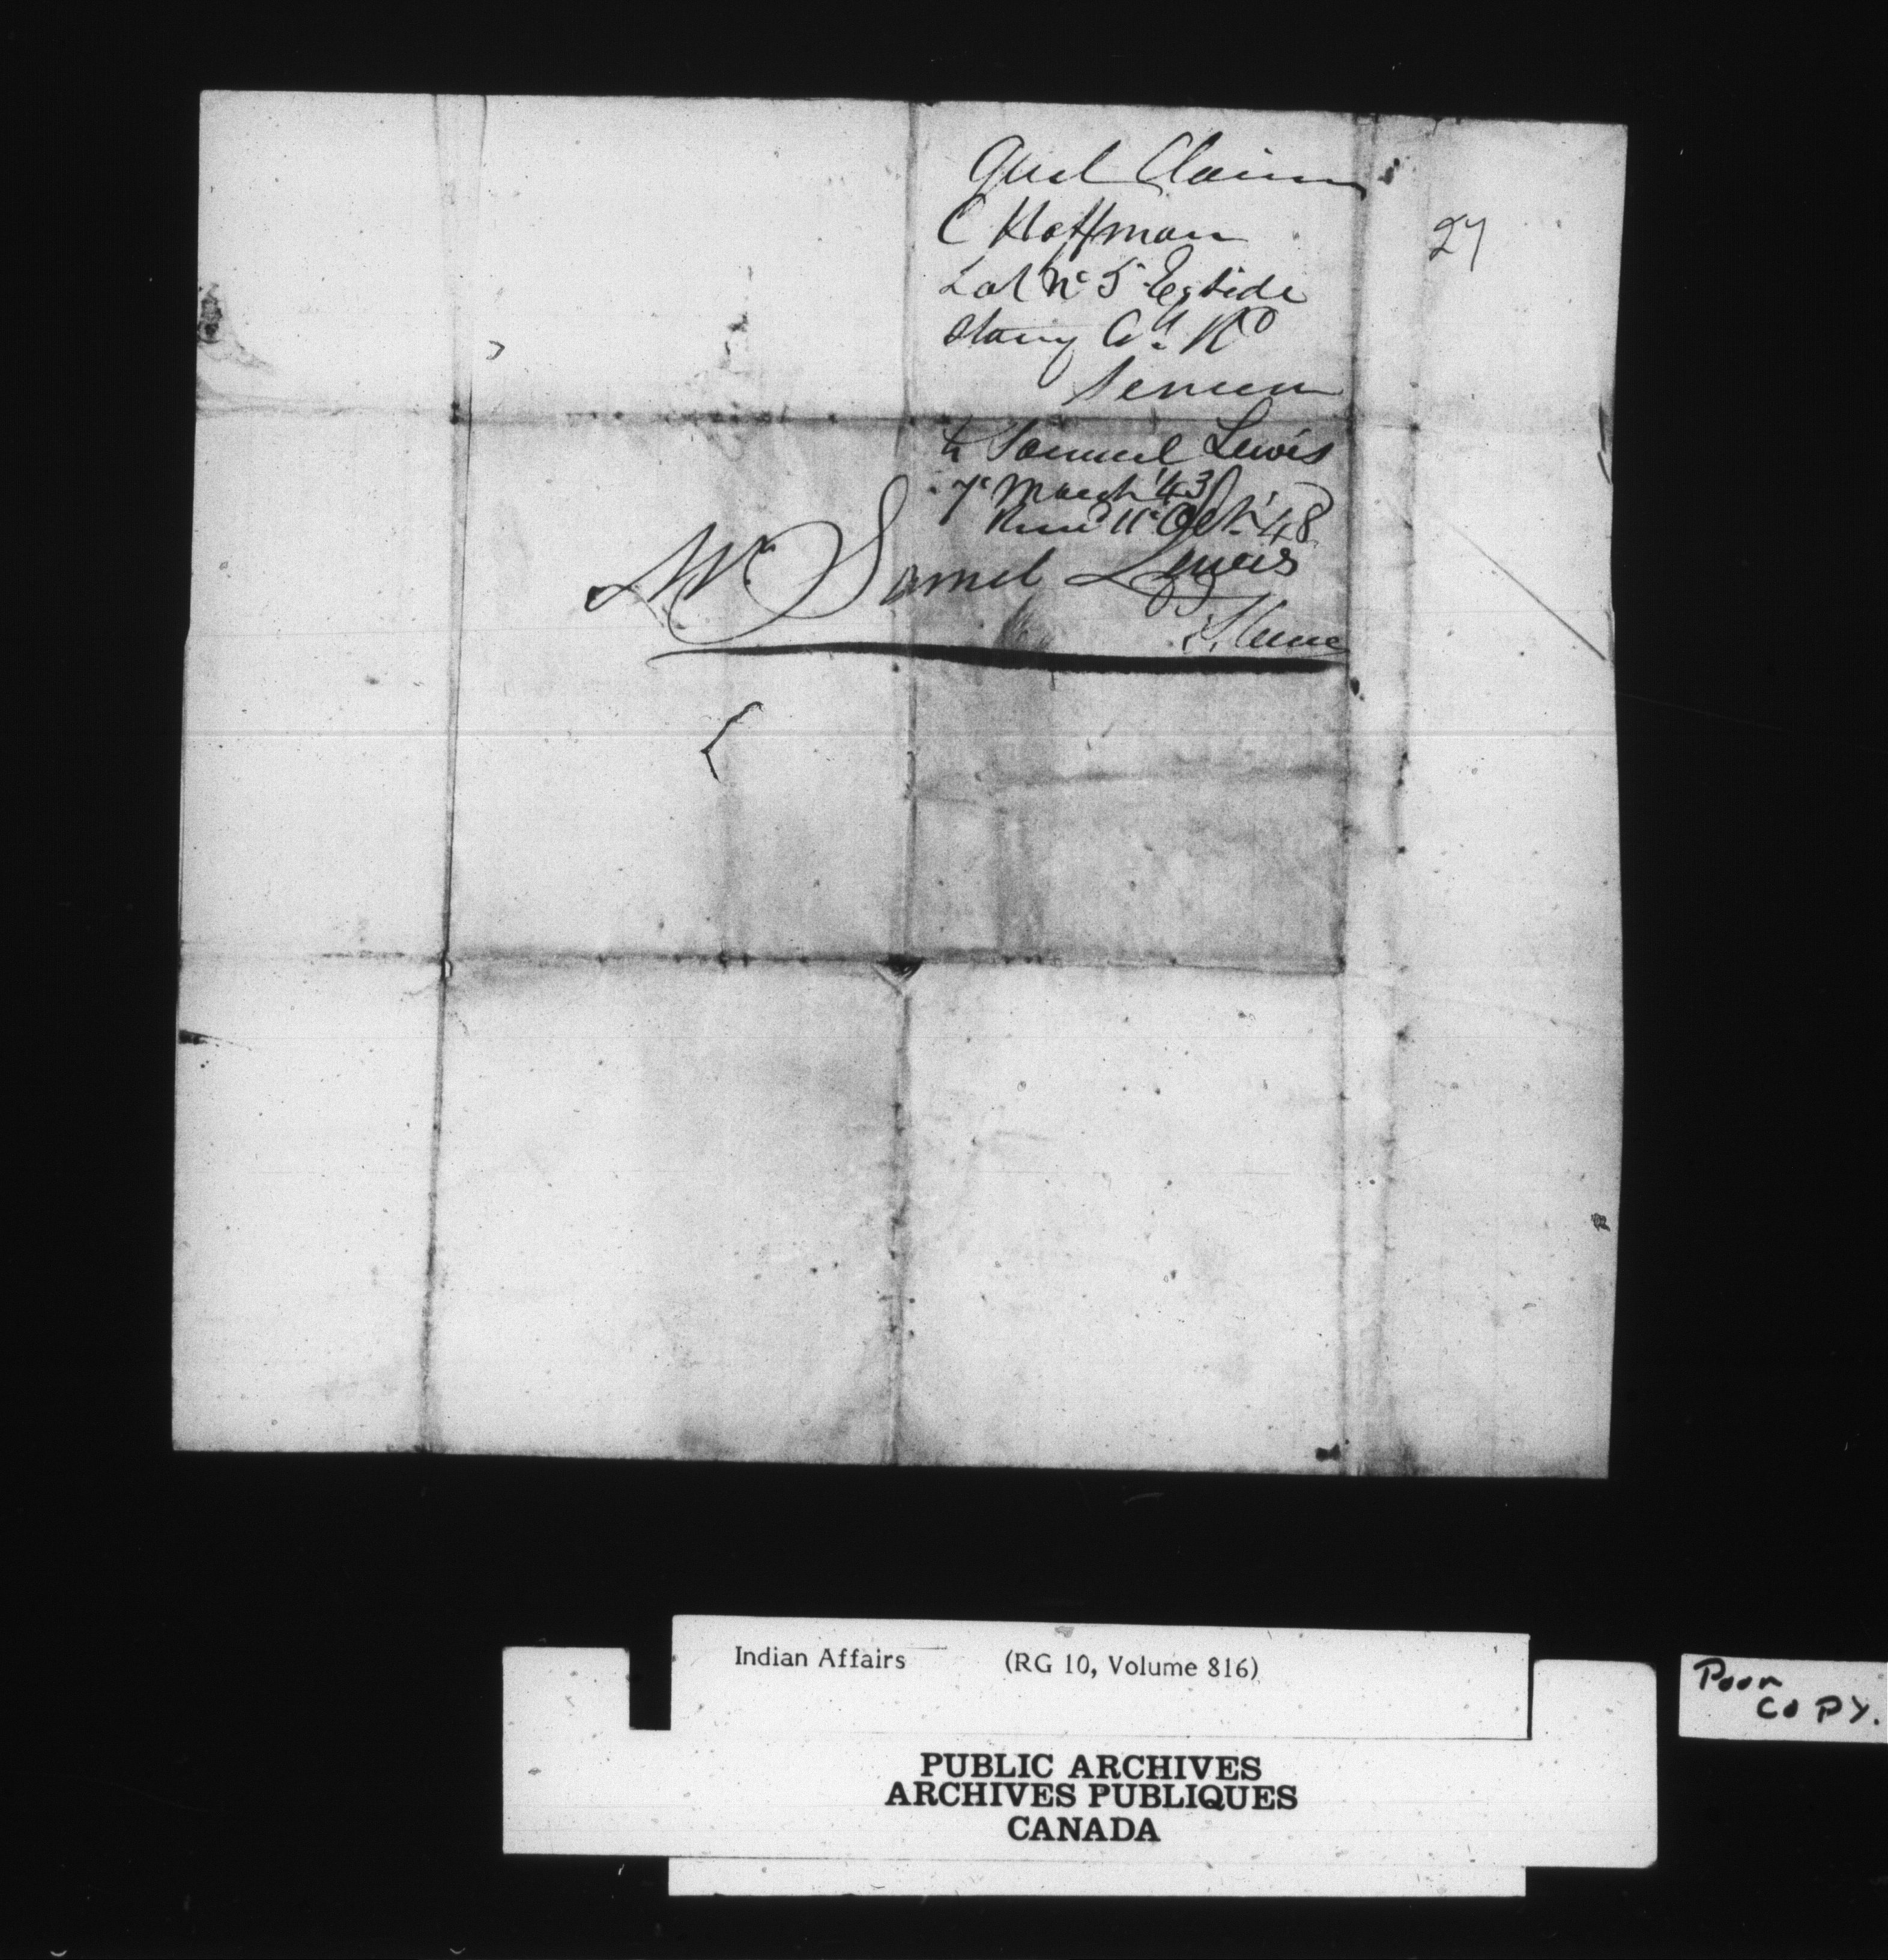 Quit Claim
C Hoffman
27
Lot No 5 Eg side
Stony Ck Rd
Seneca
to Samuel Lewis
7th March '43
Recd 11th Oct. '48
Mr Samel Lewis
Indian Affairs (RG 10, Volume 816)
Poor
COPY.
PUBLIC ARCHIVES
ARCHIVES PUBLIQUES
CANADA